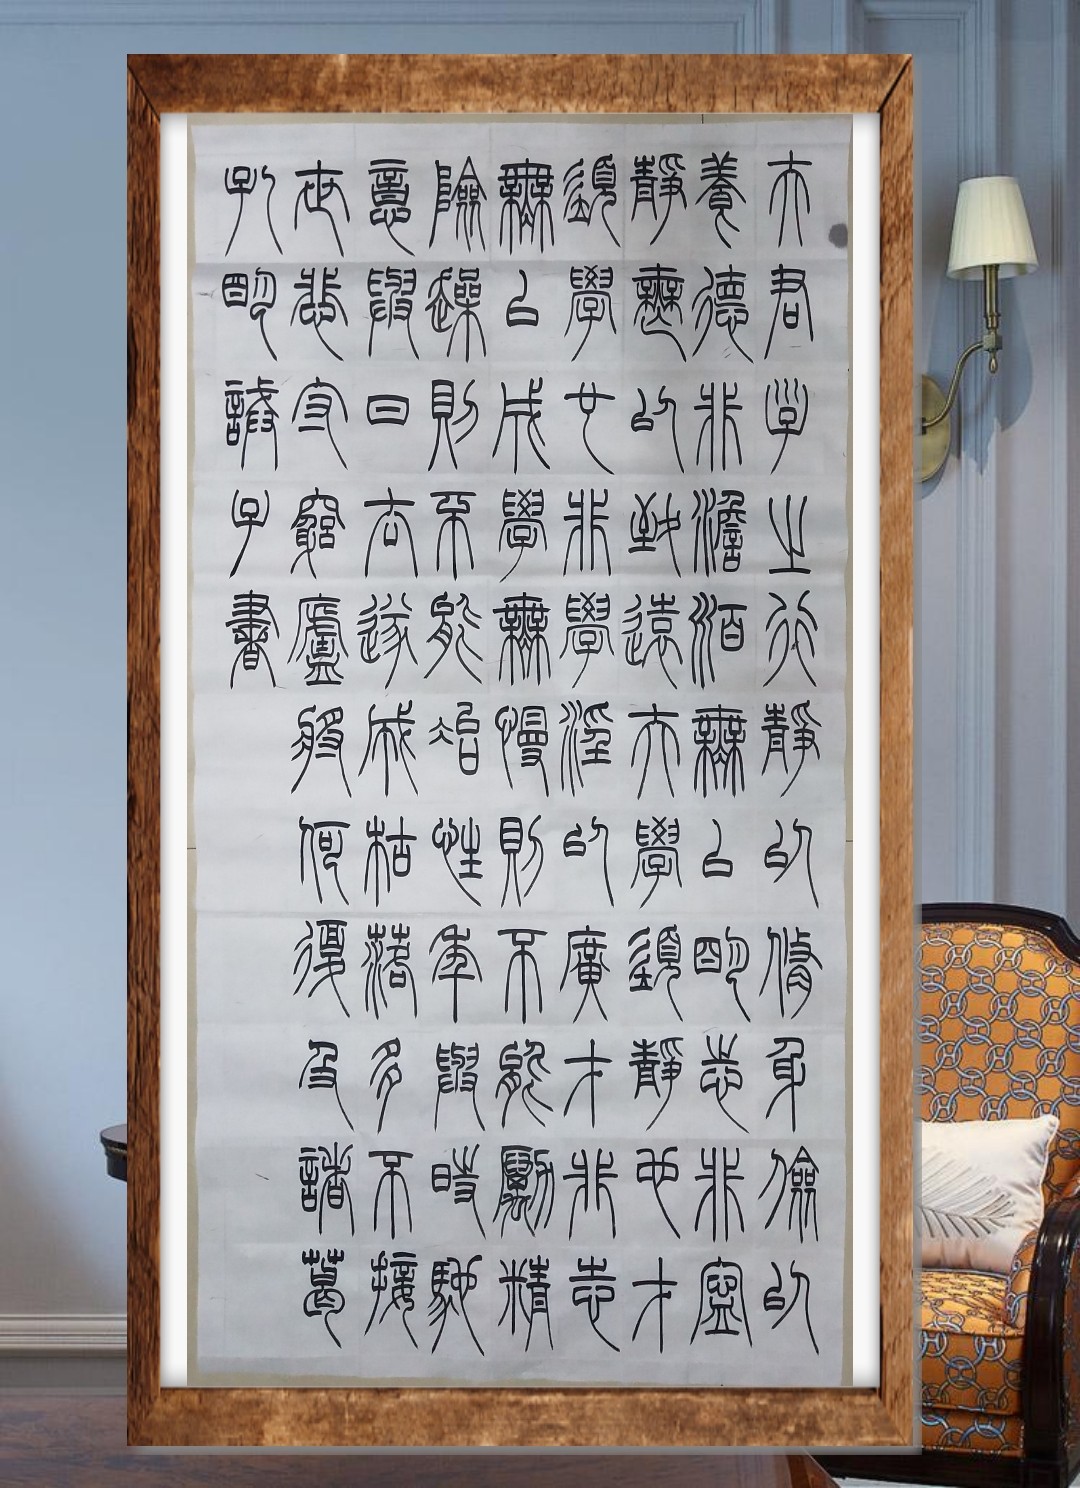 夫君子之行靜以脩身儉以
養德非澹泊無以明志非寧
靜無以致遠夫學須靜也才
須學也非學淫以廣才非志
無以成學無慢則不能勵精
險躁則不能冶性年與時馳
意與日去遂成枯落多不接
世悲守窮廬將何復及諸葛
孔明誡子書